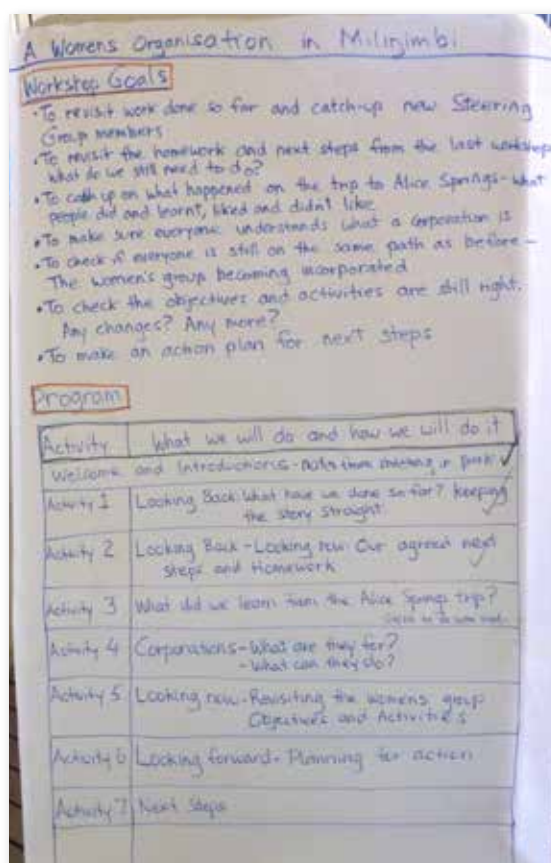 A Womens Organisation in Milinjimbi
Workshop Goals
• To revisit work done so far and catch-up new Steering
Group members
• To revisit the homework and next steps from the last workshop
what do we still need to do?
• To catch up on what happened on the trip to Alice Springs - what
people did and learnt, liked and didn't like
• To make sure everyone understands what a corporation is
• To check if everyone is still on the same path as before -
The women's group becoming incorporated
• To check the objectives and activities are still right.
Any changes? Any more?
• To make an action plan for next steps
Program
Activity What we will do and how we will do it
Welcome and Introductions - notes from meeting in park ✓
Activity 1 Looking Back What have we done so far? Keeping
the story straight
Activity 2 Looking Back - Looking now Our agreed next
steps and Homework
Activity 3 What did we learn from the Alice Springs trip?
Activity 4 Corporations - What are they for?
- What can they do?
Activity 5 Looking now - Revisiting the womens group
Objectives and Activities
Activity 6 Looking forward - Planning for action
Activity 7 Next Steps